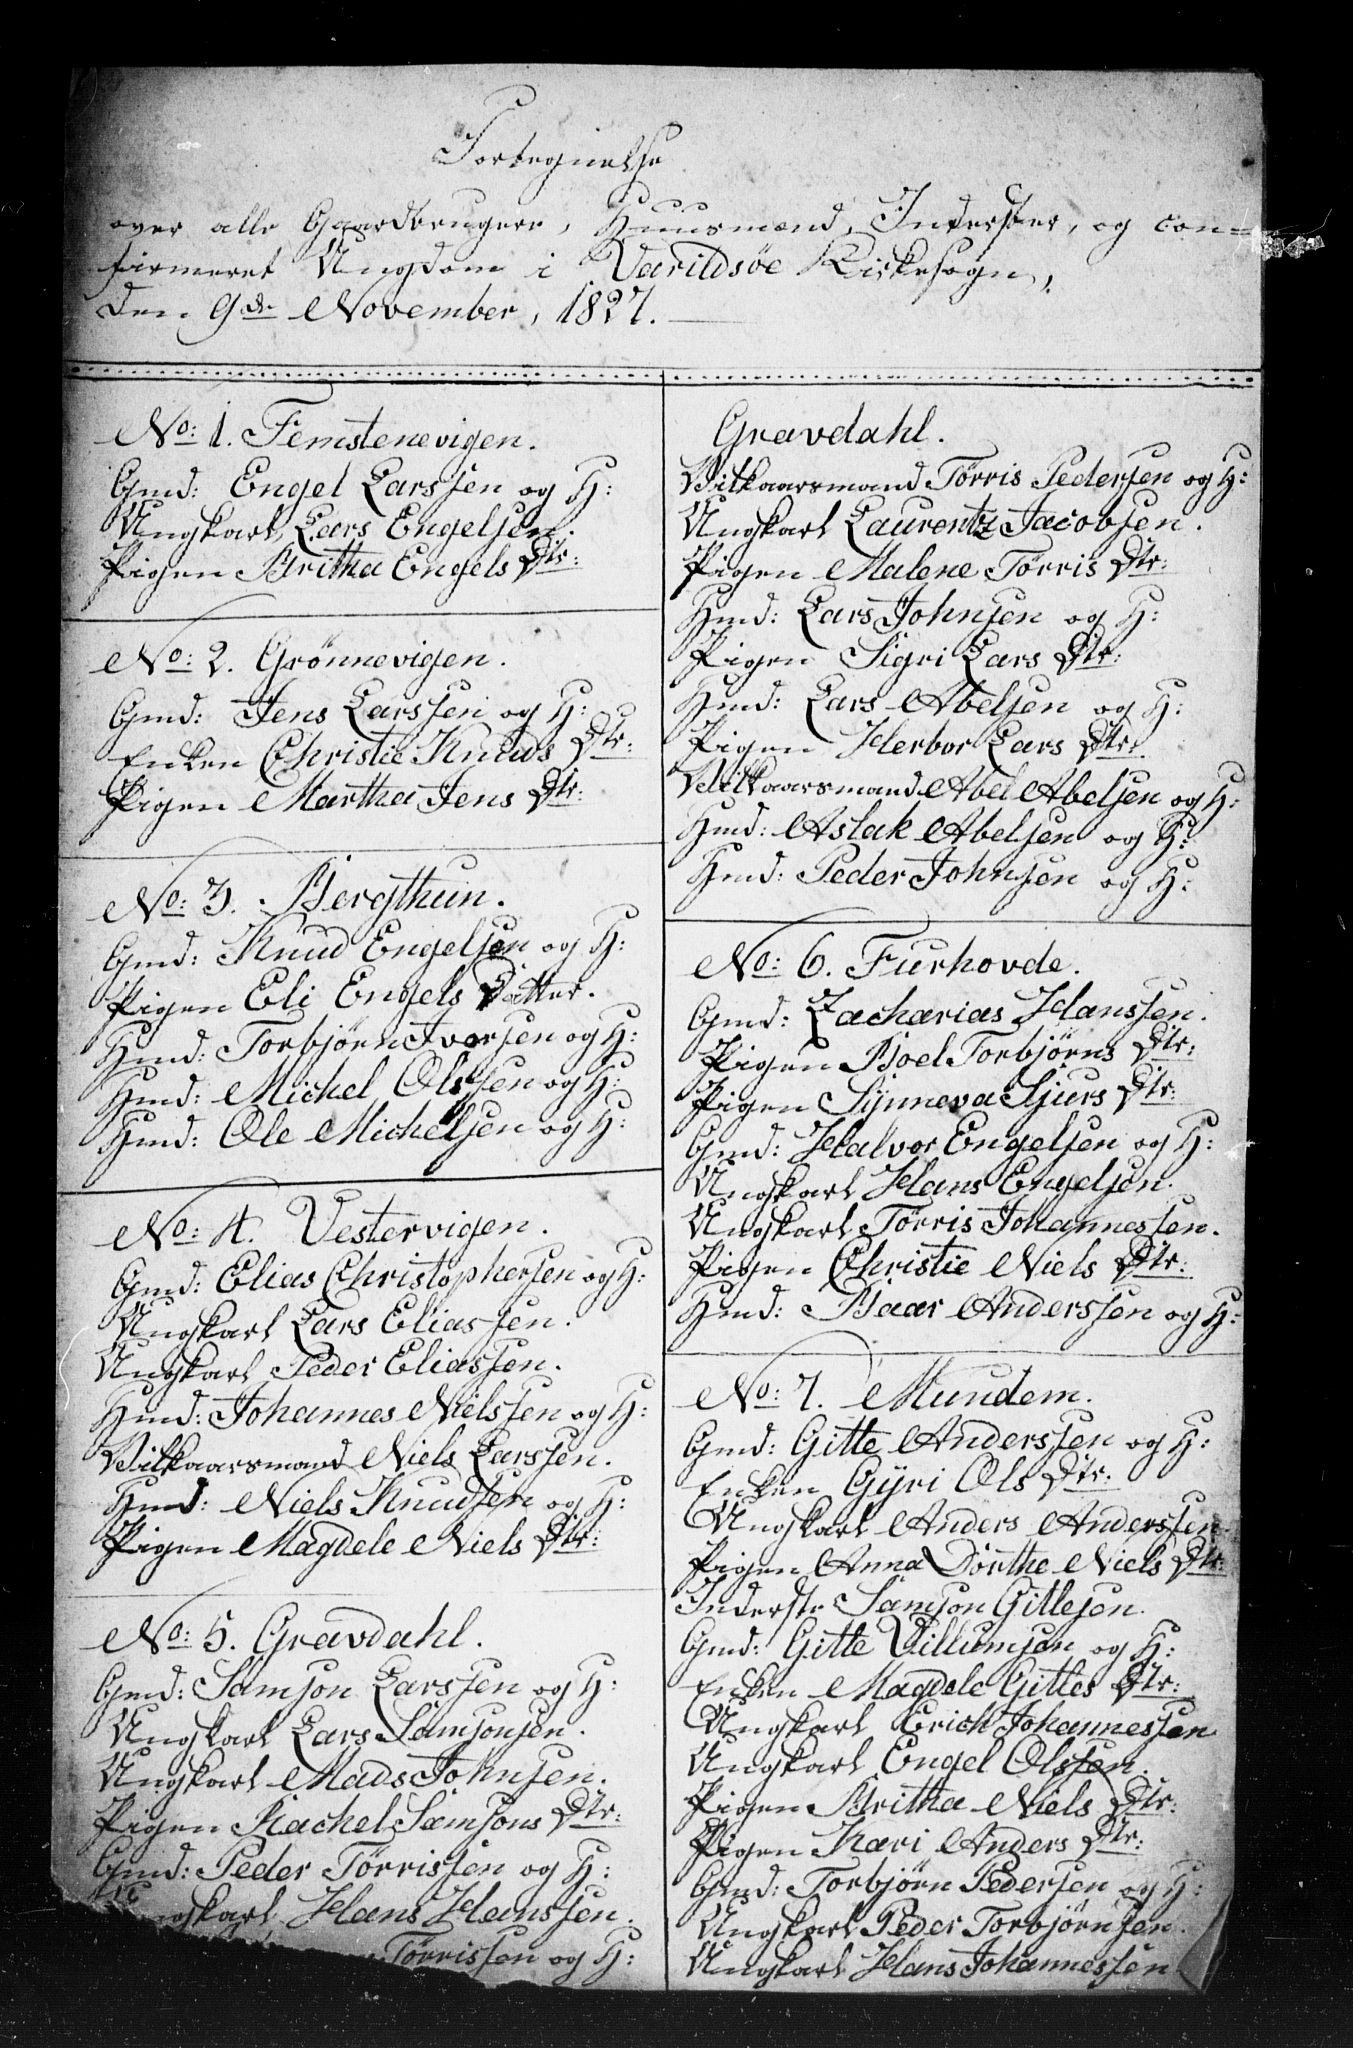 Fortegnelse
over alle Gaardbrugere, Huusmænd, Inderster, og con=
firmeret Ungdom i Varildsøe Kirkesogn,
den 9de November, 1827.
No: 1. Femstenevigen.
Gmd: Engel Larssen og H:
Ungkarl Lars Engelsen.
Pigen Britha Engels Dtr:
No: 2. Grønnevigen.
Gmd: Jens Larssen og H:
Enken Christie Knuds Dtr:
Pigen Martha Jens Dtr:
No: 3. Bergthun.
Gmd: Knud Engelsen og H:
Pigen Eli Engels Datter.
Hmd: Torbjørn Ivarsen og H:
Hmd: Michel Olssen og H:
Hmd: Ole Michelsen og H:
No: 4. Vestervigen.
Gmd: Elias Christophersen og H:
Ungkarl Lars Eliassen.
Ungkarl Peder Eliassen.
Hmd: Johannes Nielssen og H:
Vilkaarsmand Niels Larssen.
Hmd: Niels Knudsen og H:
Pigen Magdele Niels Dtr:
No: 5. Gravdahl.
Gmd: Samson Larssen og H:
Ungkarl Lars Samsonsen.
Ungkarl Mads Johnsen.
Pigen Rachel Samsons Dtr:
Gmd: Peder Tørrissen og H:
Ungkarl Hans Hanssen.
Tørrissen og H:
Gravdahl.
Vilkaarsmand Tørris Pedersen og H:
Ungkarl Laurentz Jacobsen.
Pigen Malene Tørris Dtr:
Hmd: Lars Johnsen og H:
Pigen Sigri Lars Dtr:
Hmd: Lars Abelsen og H:
Pigen Herbor Lars Dtr:
Vilkaarsmand Abel Abelsen og H:
Hmd: Aslak Abelsen og H:
Hmd: Peder Johnsen og H:
No: 6. Furhovde.
Gmd: Zacharias Hanssen.
Pigen Boel Torbjørns Dtr:
Pigen Synneva Sjurs Dtr:
Gmd: Halvor Engelsen og H:
Ungkarl Hans Engelsen.
Ungkarl Tørris Johannessen.
Pigen Christie Niels Dtr:
Hmd: Baar Anderssen og H:
No: 7. Mundem.
Gmd: Gitte Anderssen og H:
Enken Gyri Ols Dtr:
Ungkarl Anders Anderssen
Pigen Anna Dorthe Niels Dtr:
Inderste Samson Gittesen.
Gmd: Gitte Villumsen og H:
Enken Magdele Gittes Dtr:
Ungkarl Erich Johannessen
Ungkarl Engel Olssen.
Pigen Britha Niels Dtr:
Pigen Kari Anders Dtr:
Gmd: Torbjørn Pedersen og H:
Ungkarl Peder Torbjørnsen.
Ungkarl Hans Johannessen